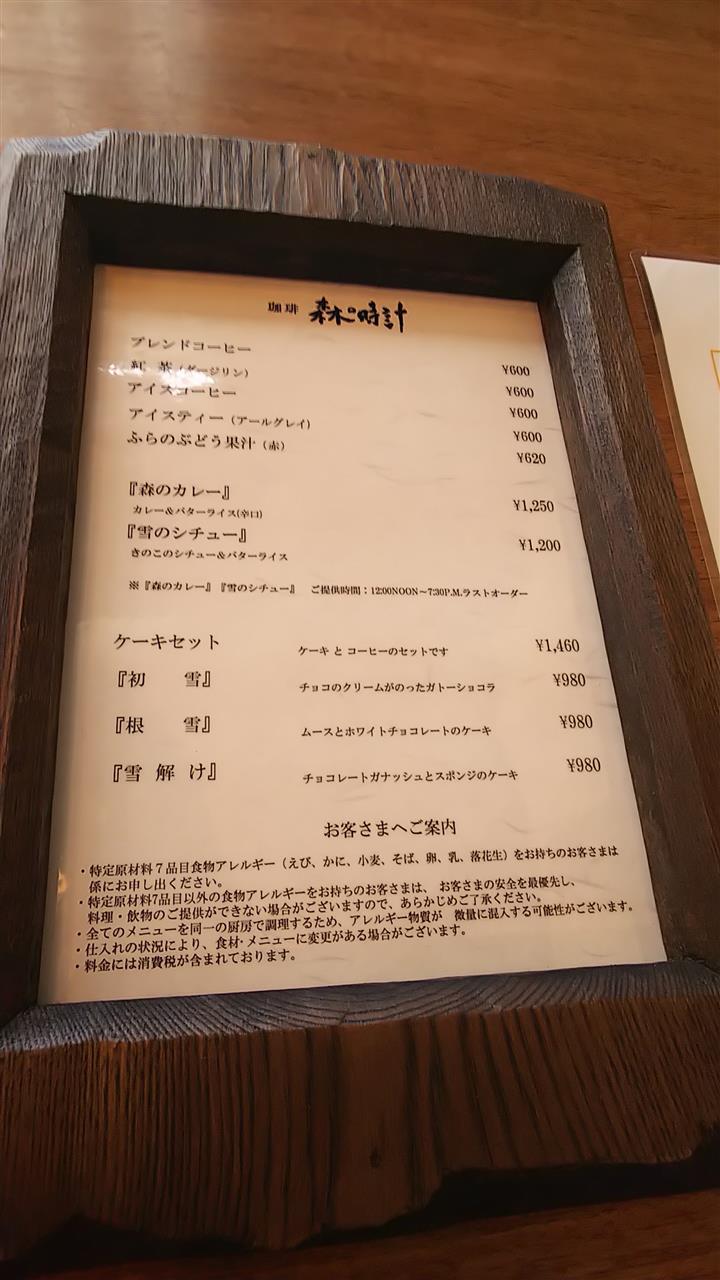 珈琲 森の時計
ブレンドコーヒー ¥600
紅 茶 (ダージリン) ¥600
アイスコーヒー ¥600
アイスティー (アールグレイ) ¥600
ふらのぶどう果汁 (赤) ¥620
『森のカレー』 ¥1,250
カレー&バターライス(辛口)
『雪のシチュー』 ¥1,200
きのこのシチュー&バターライス
※『森のカレー』『雪のシチュー』 ご提供時間：12:00NOON～7:30P.M.ラストオーダー
ケーキセット ケーキ と コーヒーのセットです ¥1,460
『初 雪』 チョコのクリームがのったガトーショコラ ¥980
『根 雪』 ムースとホワイトチョコレートのケーキ ¥980
『雪 解 け』 チョコレートガナッシュとスポンジのケーキ ¥980
お客さまへご案内
・特定原材料７品目食物アレルギー（えび、かに、小麦、そば、卵、乳、落花生）をお持ちのお客さまは
係にお申し出ください。
・特定原材料7品目以外の食物アレルギーをお持ちのお客さまは、 お客さまの安全を最優先し、
料理・飲物のご提供ができない場合がございますので、あらかじめご了承ください。
・全てのメニューを同一の厨房で調理するため、アレルギー物質が 微量に混入する可能性がございます。
・仕入れの状況により、食材･メニューに変更がある場合がございます。
・料金には消費税が含まれております。